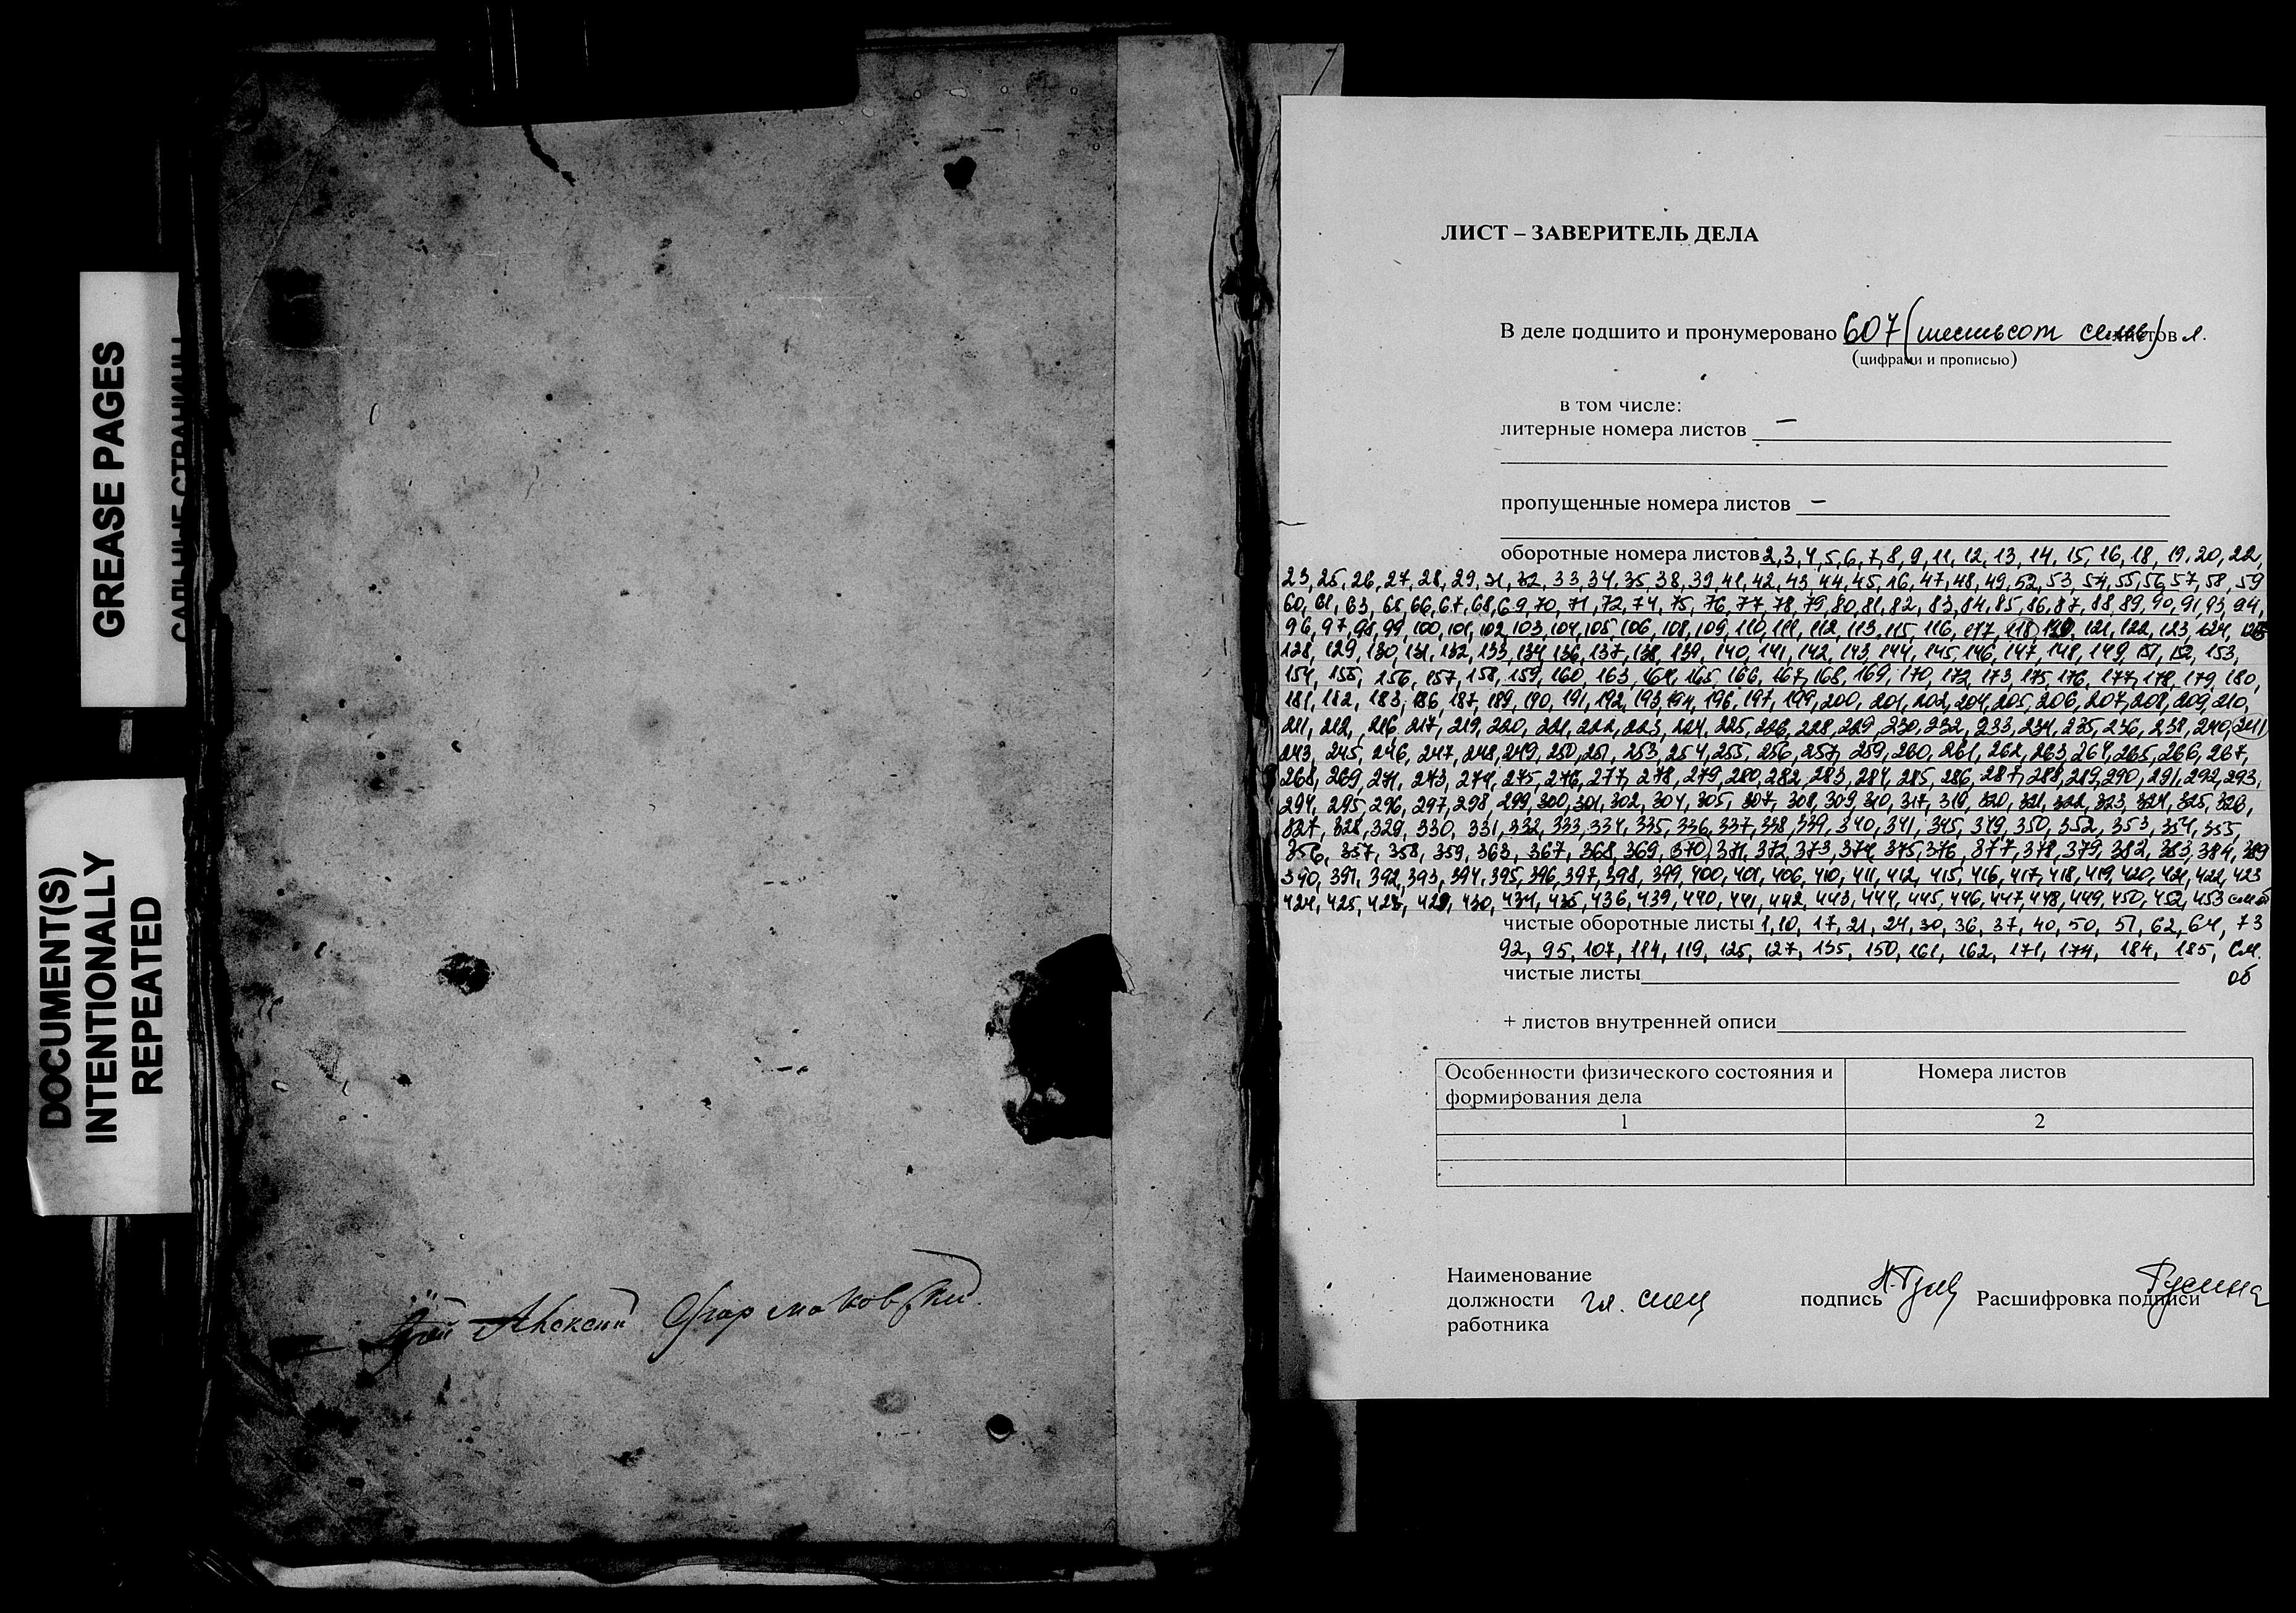 GREASE PAGES
DOCUMENT(S)
INTENTIONALLY
REPEATED
Алексий
ЛИСТ – ЗАВЕРИТЕЛЬ ДЕЛА
В деле подшито и пронумеровано 607 (шестьсот семь) листов л.
(цифрами и прописью)
в том числе:
литерные номера листов –
пропущенные номера листов –
оборотные номера листов 2,3,4,5,6,7,8,9,11,12,13,14,15,16,18,19,20,22,
23,25,26,27,28,29,31,32,33,34,35,38,39,41,42,43,44,45,46,47,48,49,52,53,54,55,56,57,58,59
60,61,63,65,66,67,68,69,70,71,72,74,75,76,77,78,79,80,81,82,83,84,85,86,87,88,89,90,91,93,94,
96,97,98,99,100,101,102,103,104,105,106,108,109,110,111,112,113,115,116,117,118,120,121,122,123,124,126
128,129,130,131,132,133,134,136,137,138,139,140,141,142,143,144,145,146,147,148,149,151,152,153,
154,155,156,157,158,159,160,163,164,165,166,167,168,169,170,172,173,175,176,177,178,179,180,
181,182,183,186,187,189,190,191,192,193,194,196,197,199,200,201,202,204,205,206,207,208,209,210,
211,212,216,217,219,220,221,222,223,224,225,226,228,229,230,232,233,234,235,236,238,240,241
243,245,246,247,248,249,250,251,253,254,255,256,257,259,260,261,262,263,264,265,266,267,
268,269,271,273,274,275,276,277,278,279,280,282,283,284,285,286,287,288,289,290,291,292,293,
294,295,296,297,298,299,300,301,302,304,305,307,308,309,310,317,319,320,321,322,323,324,325,326,
327,328,329,330,331,332,333,334,335,336,337,338,339,340,341,345,349,350,352,353,354,355,
356,357,358,359,363,367,368,369,370,371,372,373,374,375,376,377,378,379,382,383,384,389
390,391,392,393,394,395,396,397,398,399,400,401,406,410,411,412,415,416,417,418,419,420,421,422,423
424,425,428,429,430,434,435,436,439,440,441,442,443,444,445,446,447,448,449,450,452,453 см об
чистые оборотные листы 1,10,17,21,24,30,36,37,40,50,51,62,64,73
92,95,107,114,119,125,127,135,150,161,162,171,174,184,185, см.
чистые листы об
+ листов внутренней описи
Особенности физического состояния и формирования дела Номера листов
1 2
Наименование
должности гл. спец подпись Расшифровка подписи Гусина
работника